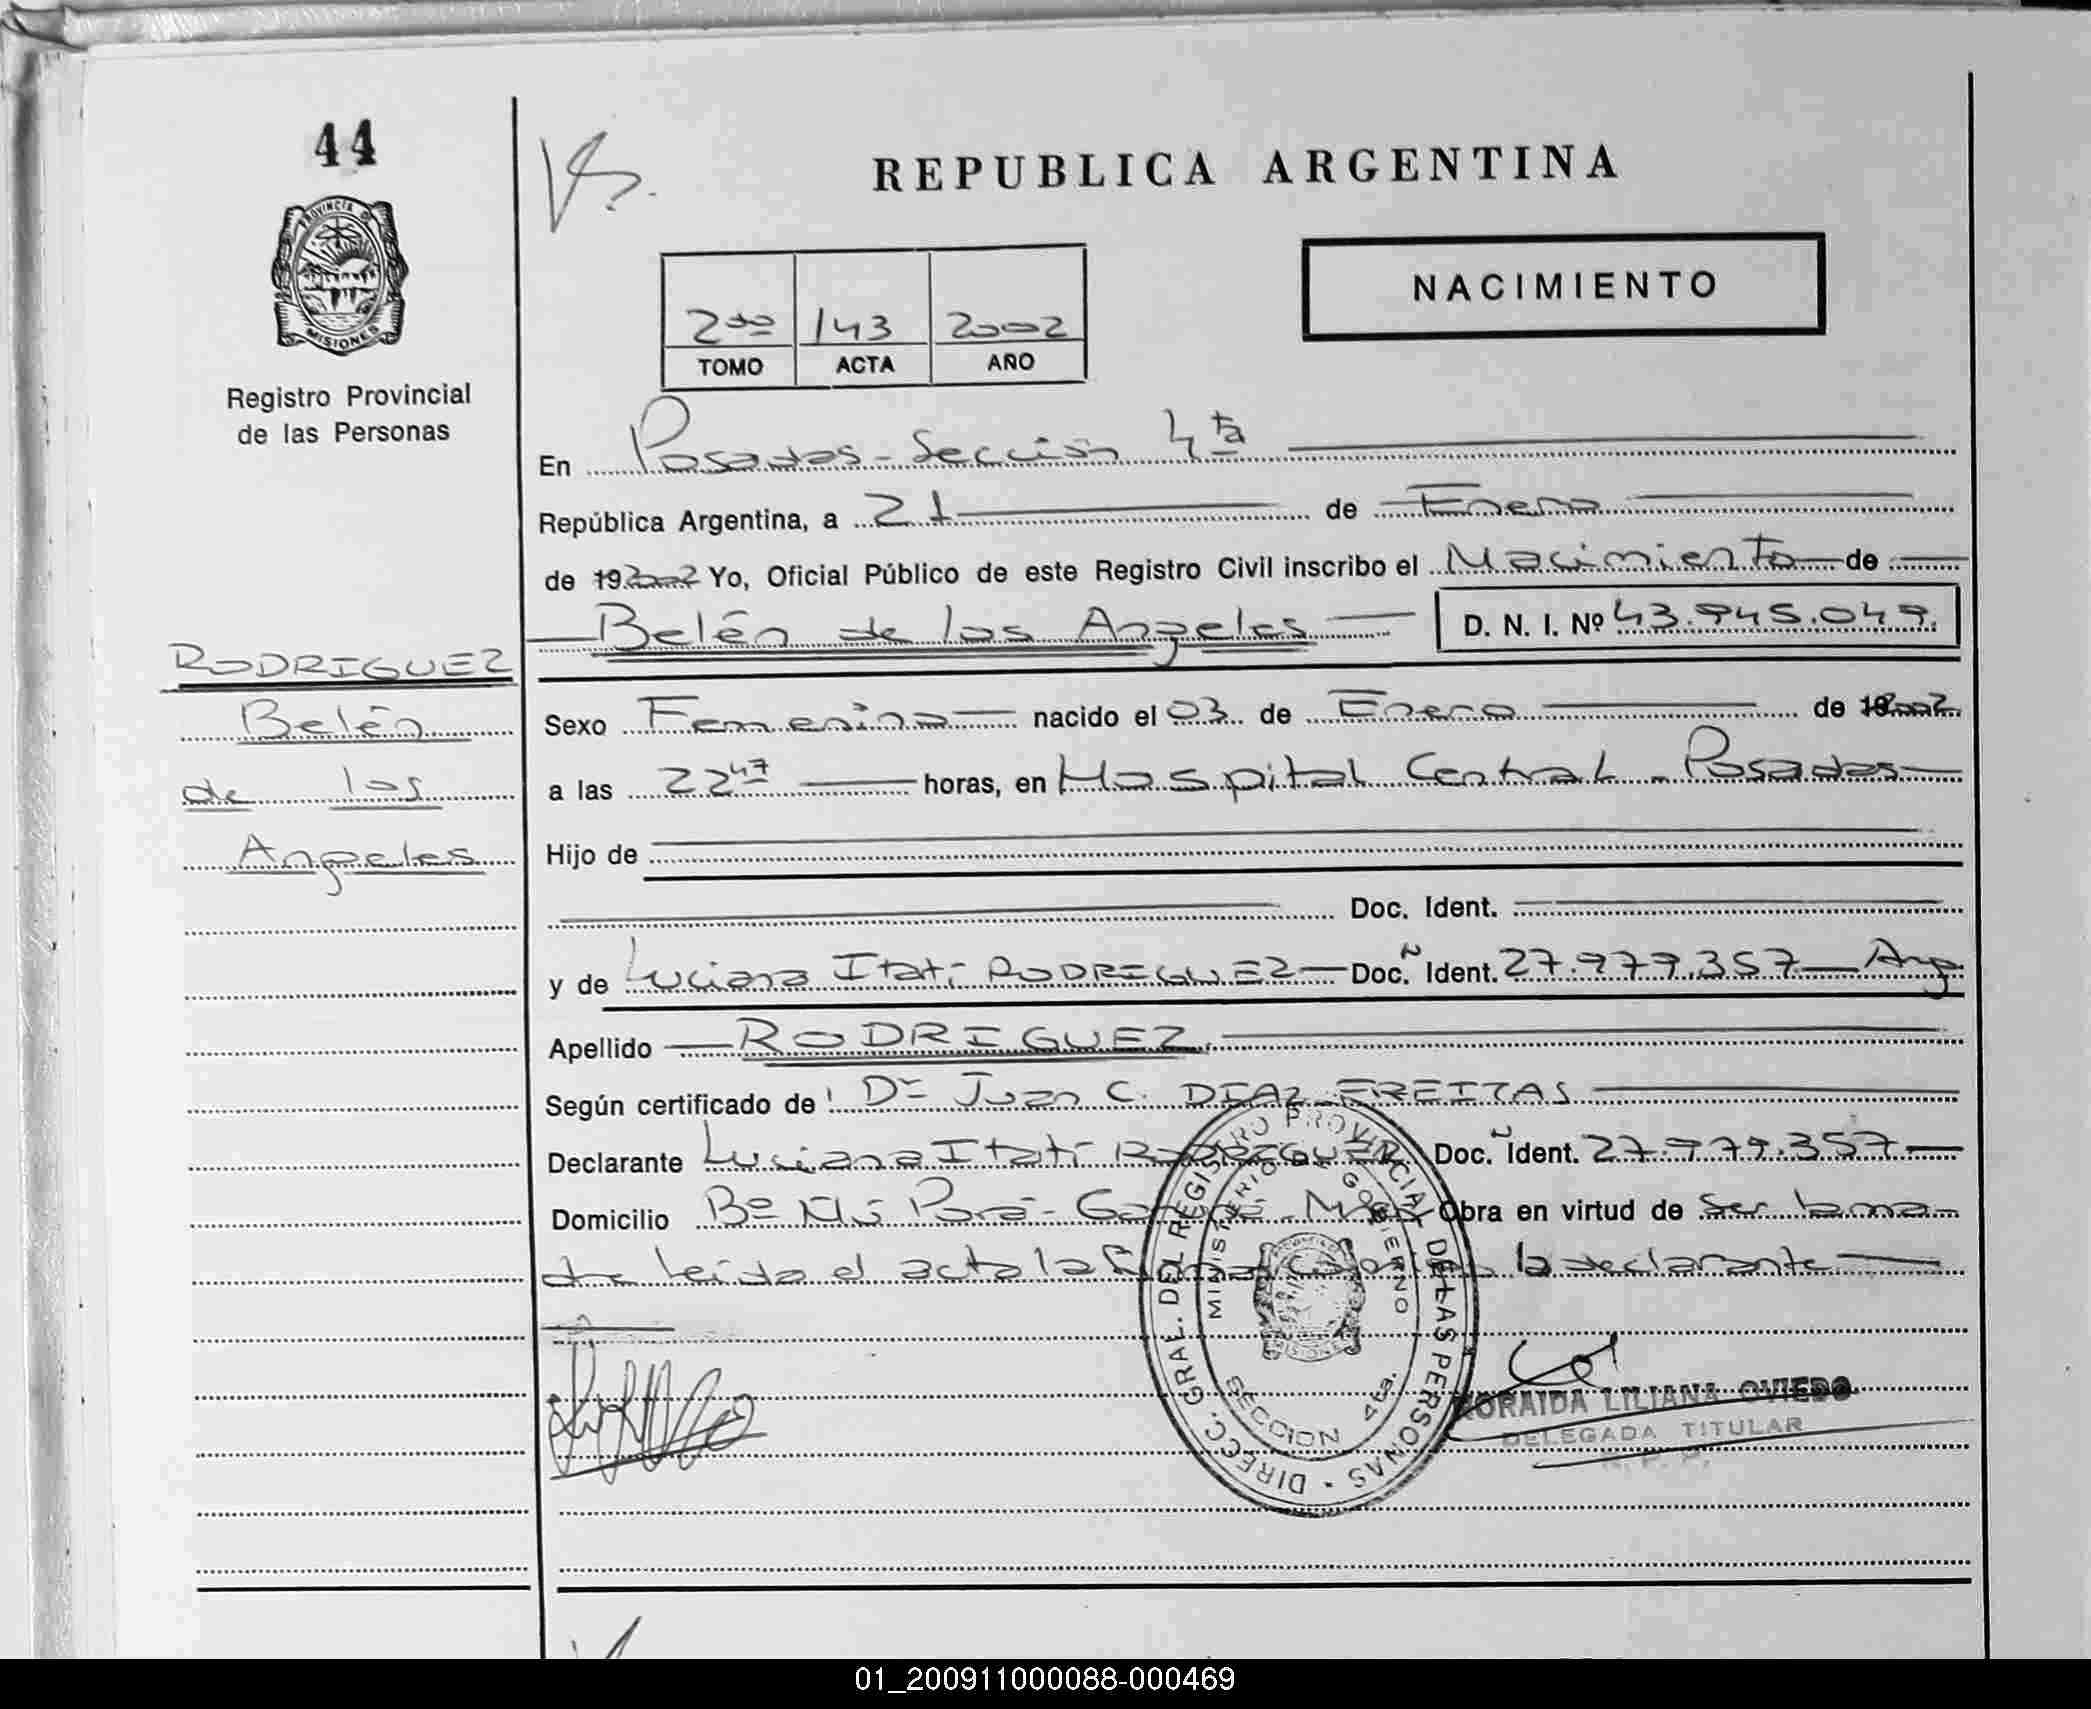 44
PROVINCIA DE
MISIONES
Registro Provincial
de las Personas
REPUBLICA ARGENTINA
NACIMIENTO
2do 143 2002
TOMO ACTA AÑO
En Posadas - Sección 4ta
República Argentina, a 21 de Enero
de 19 2002 Yo, Oficial Público de este Registro Civil inscribo el Nacimiento de
Belén de los Angeles D. N. I. Nº 43.945.049.
RODRIGUEZ
Belén
de los
Angeles
Sexo Femenino nacido el 03 de Enero de 2002
a las 22 47 horas, en Hospital Central - Posadas
Hijo de
Doc. Ident.
y de Luciana Itatí RODRIGUEZ Doc. Ident. 27.979.357 Arg
Apellido RODRIGUEZ
Según certificado de Dr Juan C. DIAZ FREITAS
Declarante Luciana Itatí RODRIGUEZ Doc. Ident. 27.979.357
Domicilio Bº Ñu Porá - Garupá - Mnes Obra en virtud de Ser la ma-
dre leida el acta la firma la declarante
DIRECC. GRAL. DEL REGISTRO PROVINCIAL DE LAS PERSONAS
MINISTERIO DE GOBIERNO
MISIONES
SECCION 4ta.
ZORAIDA LILIANA OVIEDO
DELEGADA TITULAR
R. P. P.
01_200911000088-000469